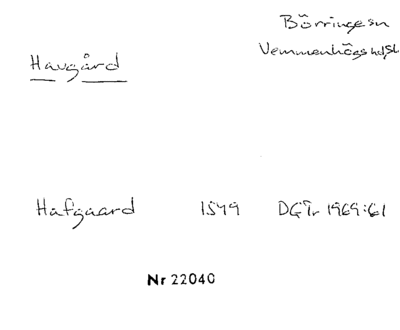 Börringe sn
Vemmenhögs hd, Sk
Havgård
Hafgaard 1549 DGTr 1969:61
Nr 22040